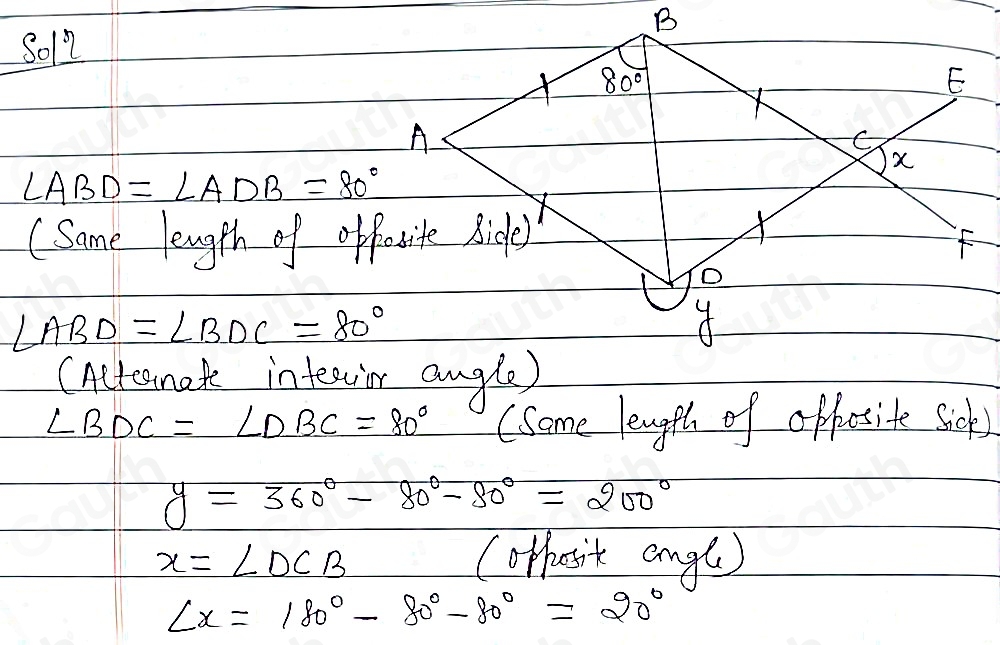 Solⁿ
B
80°
E
A
C
x
∠ABD = ∠ADB = 80°
(Same length of opposite side)
F
D
y
∠ABD = ∠BDC = 80°
(Alternate interior angle)
∠BDC = ∠DBC = 80° (Same length of opposite side)
y = 360° - 80° - 80° = 200°
x = ∠DCB (opposite angle)
∠x = 180° - 80° - 80° = 20°
Gauth